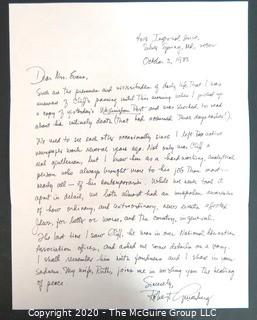 Silver Spring, Md.
October 2, 1983
Dear Mrs. Evans,
Such are the pressures and vicissitudes of daily life that I was
unaware of Cliff's passing until this morning when I picked up
a copy of yesterday's Washington Post and was shocked to read
about his untimely death (that had occurred three days earlier).
We used to see each other occasionally since I left
work several years ago. Not only was Cliff a
real gentleman, but I knew him as a hard working, analytical
person who always brought more to his job than most
really all — of his contemporaries. While we were
apart in detail, we both shared an
of how ordinary, and extraordinary, news events affected
lives, for better or worse, and the country, in general.
The last time I saw Cliff, he was in our National Education
Association offices, and asked me some details on a story.
I shall remember him with fondness and I share in your
sadness. My wife, Ruth, joins me in wishing you the healing
of peace.
Sincerely,
Copyright 2020 - The McGuire Group LLC